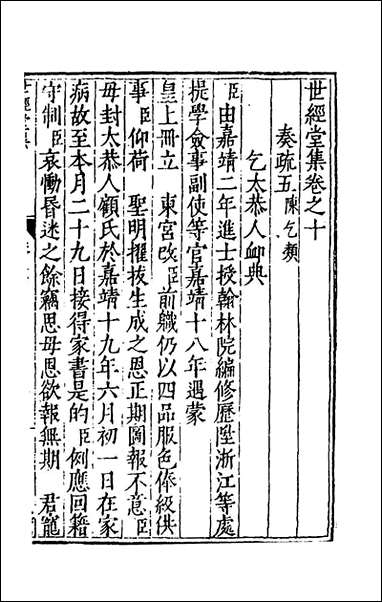 世經堂集卷之十
奏疏五陳乞類
乞太恭人卹典
臣由嘉靖二年進士授翰林院編修歷陞浙江等處
提學僉事副使等官嘉靖十八年遇蒙
皇上冊立　東宮改臣前職仍以四品服色俸級供
事臣仰荷　聖明擢拔生成之恩正期圖報不意臣
母封太恭人顧氏於嘉靖十九年六月初一日在家
病故至本月二十九日接得家書是的臣例應回籍
守制臣哀慟昏迷之餘竊思母恩欲報無期　君寵